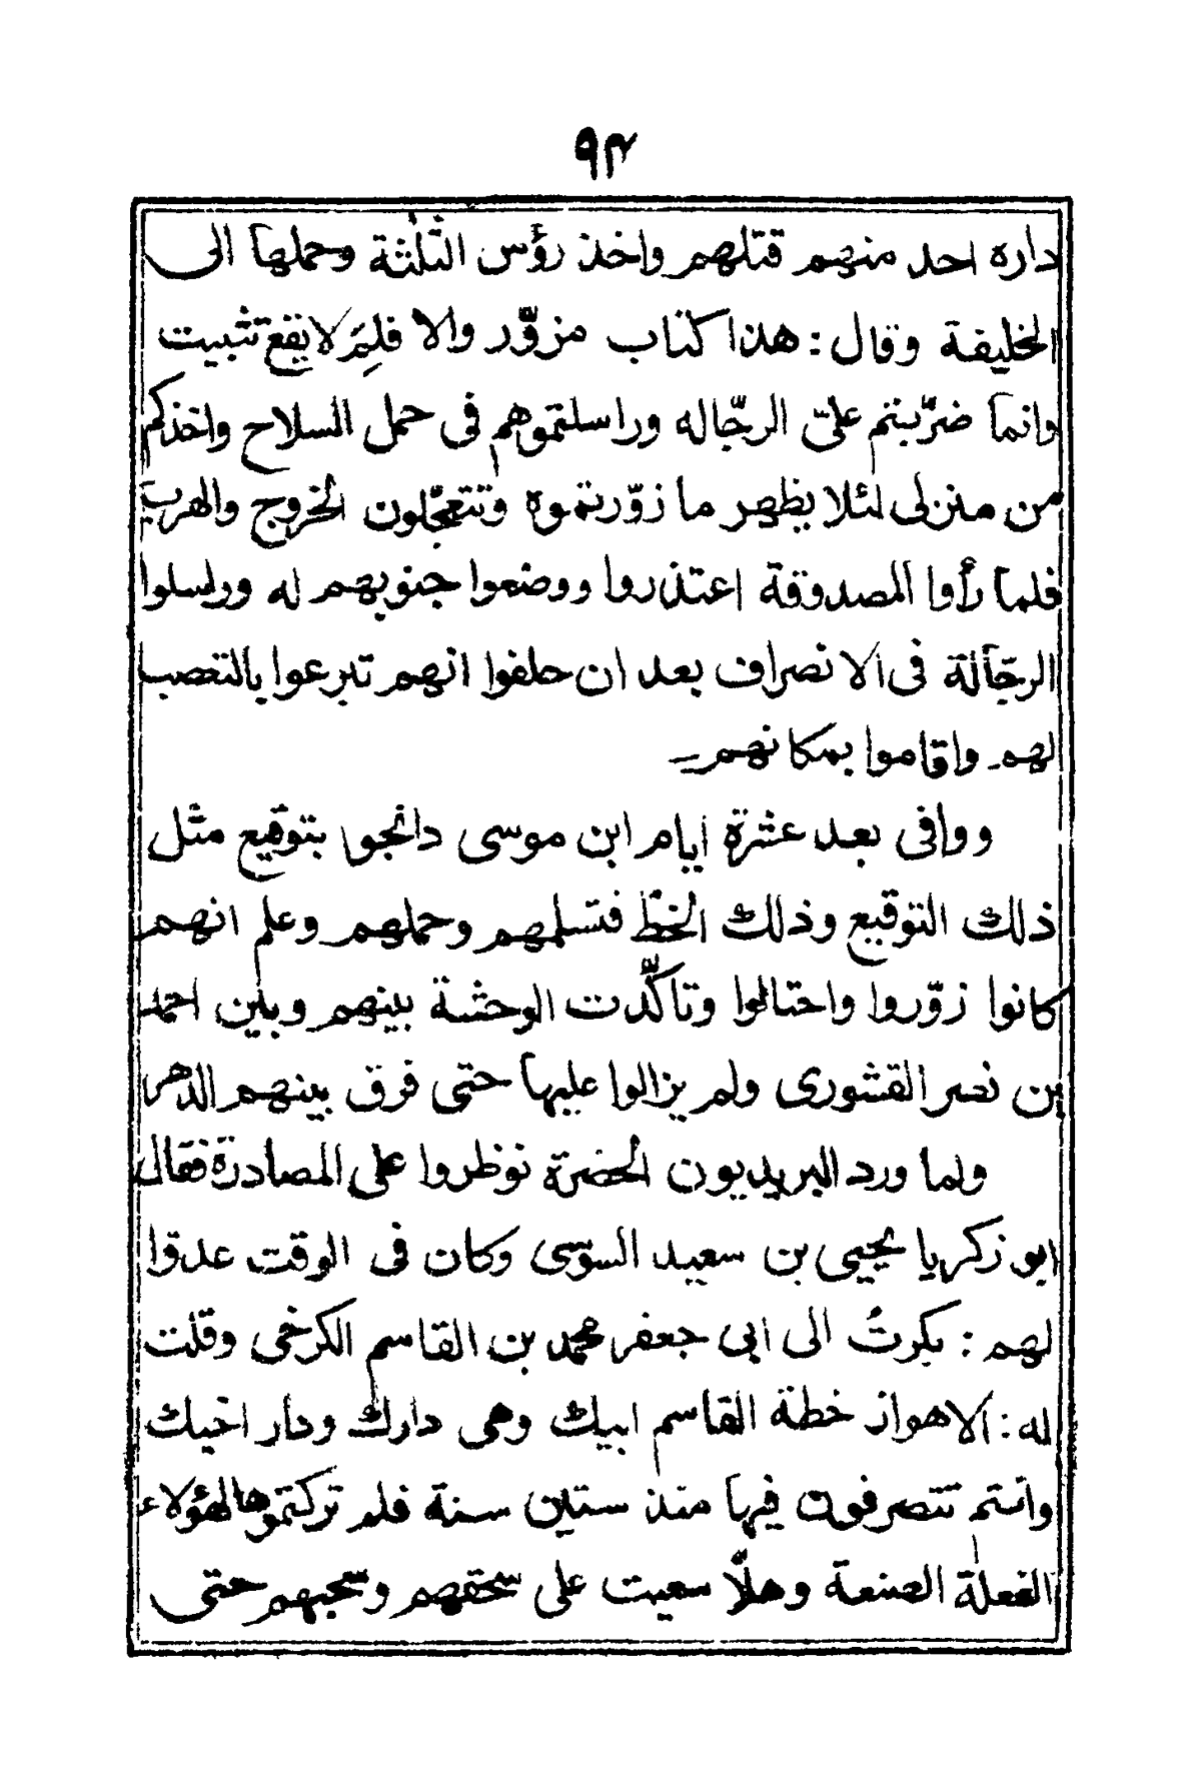 ٩٣
داره احد منهم قتلهم واخذ رؤس الثلثة وحملها الى
الخليفة وقال : هذا كتاب مزوّر والا فلِمَ لا يقع تثبيت
وانما ضرّبتم علىّ الرجّاله وراسلتموهم فى حمل السلاح واخذكم
من منزلى لئلا يظهر ما زوّرتموه وتتعجّلون الخروج والهرب
فلما رأوا المصدوقة اعتذروا ووضعوا جنوبهم له وراسلوا
الرجّالة فى الانصراف بعد ان حلفوا انهم تبرعوا بالتعصب
لهم واقاموا بمكانهم
ووافى بعد عشرة ايام ابن موسى دانجوا بتوقيع مثل
ذلك التوقيع وذلك الخطّ فتسلمهم وحملهم وعلم انهم
كانوا زوّروا واحتالوا وتاكّدت الوحشة بينهم وبين احمد
بن نصر القشورى ولم يزالوا عليها حتى فرق بينهم الدهر
ولما ورد البريديون الحضرة نوظروا على المصادرة فقال
ابو زكريا يحيى بن سعيد السوسى وكان فى الوقت عدوّا
لهم : بكرتُ الى ابى جعفر محمد بن القاسم الكرخى وقلت
له : الاهواز خطة القاسم ابيك وهى دارك ودار اخيك
وانتم تتصرفون فيها منذ ستين سنة فلم تركتموها لهؤلاء
الفعلة الصنعة وهلّا سعيت على سحقهم وسحبهم حتى